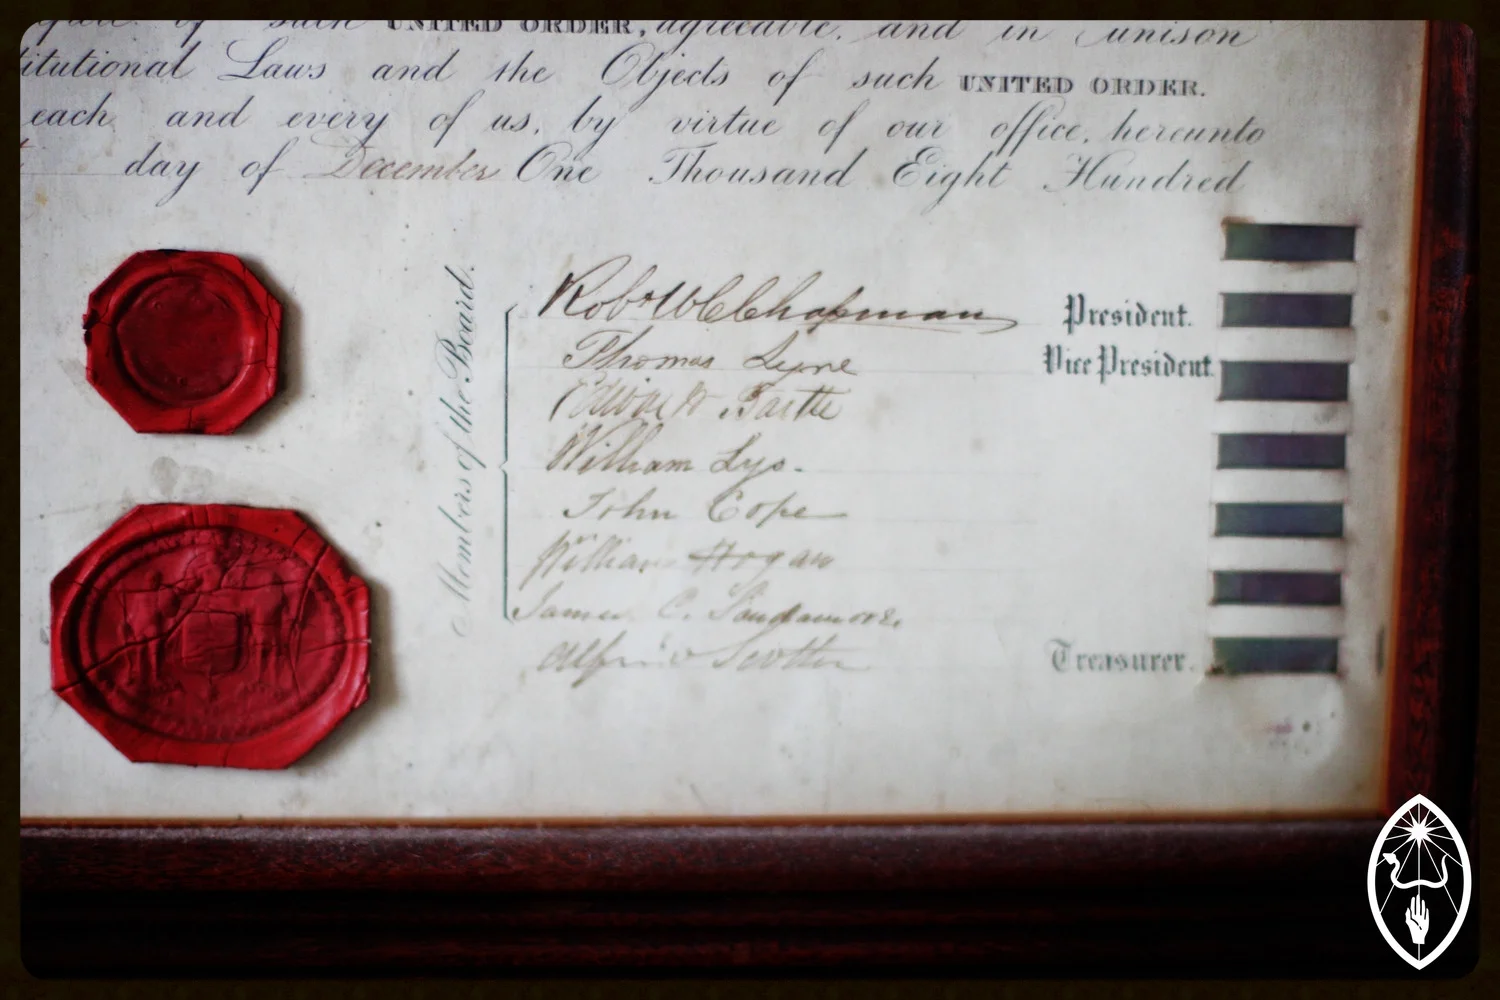 of such UNITED ORDER, agreeable, and in unison
titutional Laws and the Objects of such UNITED ORDER.
each and every of us, by virtue of our office, hereunto
day of December One Thousand Eight Hundred
Members of the Board.
Robt W C Chapman President.
Thomas Lyne Vice President.
William Lys.
John Cope
William Hogan
James C.
Treasurer.